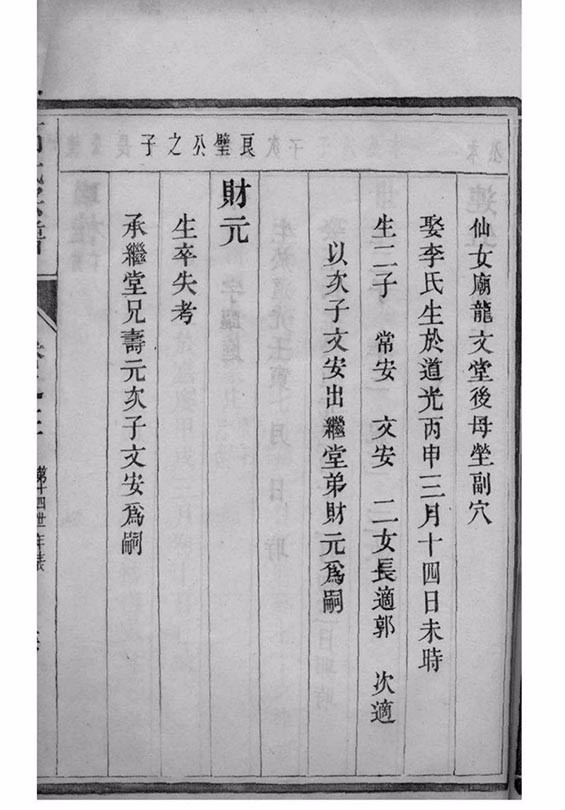 良璧公之子
仙女廟龍文堂後母塋副穴
娶李氏生於道光丙申三月十四日未時
生二子 常安 文安 二女長適郭 次適
以次子文安出繼堂弟財元為嗣
財元
生卒失考
承繼堂兄壽元次子文安為嗣
第十四世年表